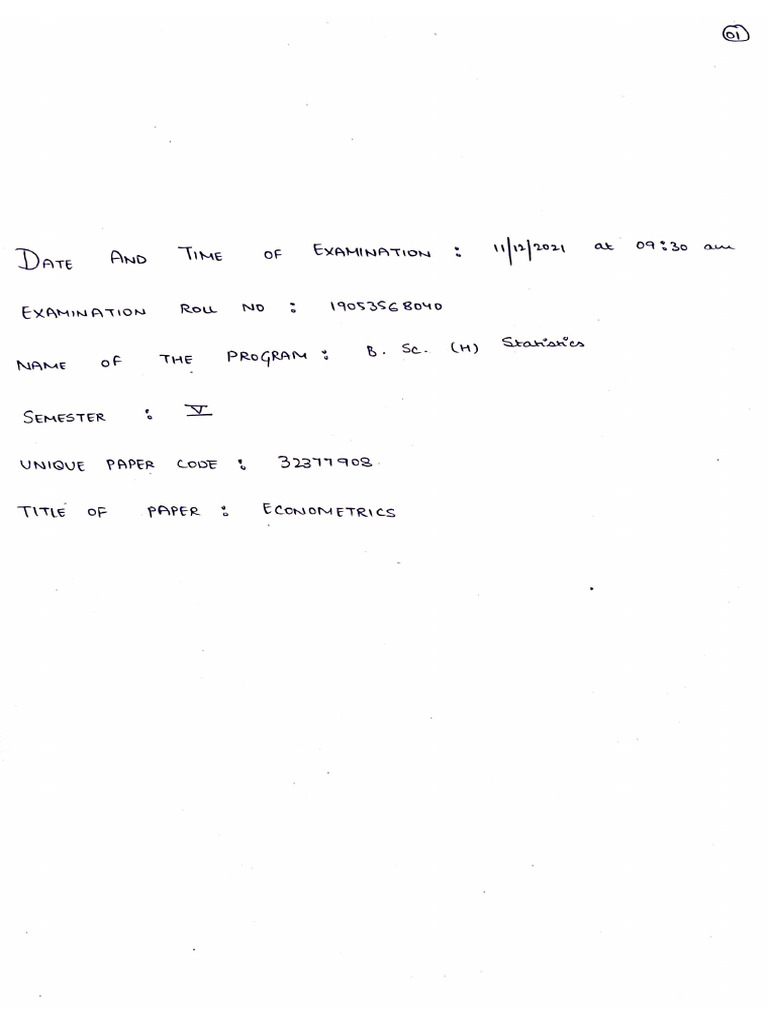 01
DATE AND TIME OF EXAMINATION : 11/12/2021 at 09:30 am
EXAMINATION ROLL NO : 19053568040
NAME OF THE PROGRAM : B. Sc. (H) Statistics
SEMESTER : V
UNIQUE PAPER CODE : 32377908
TITLE OF PAPER : ECONOMETRICS